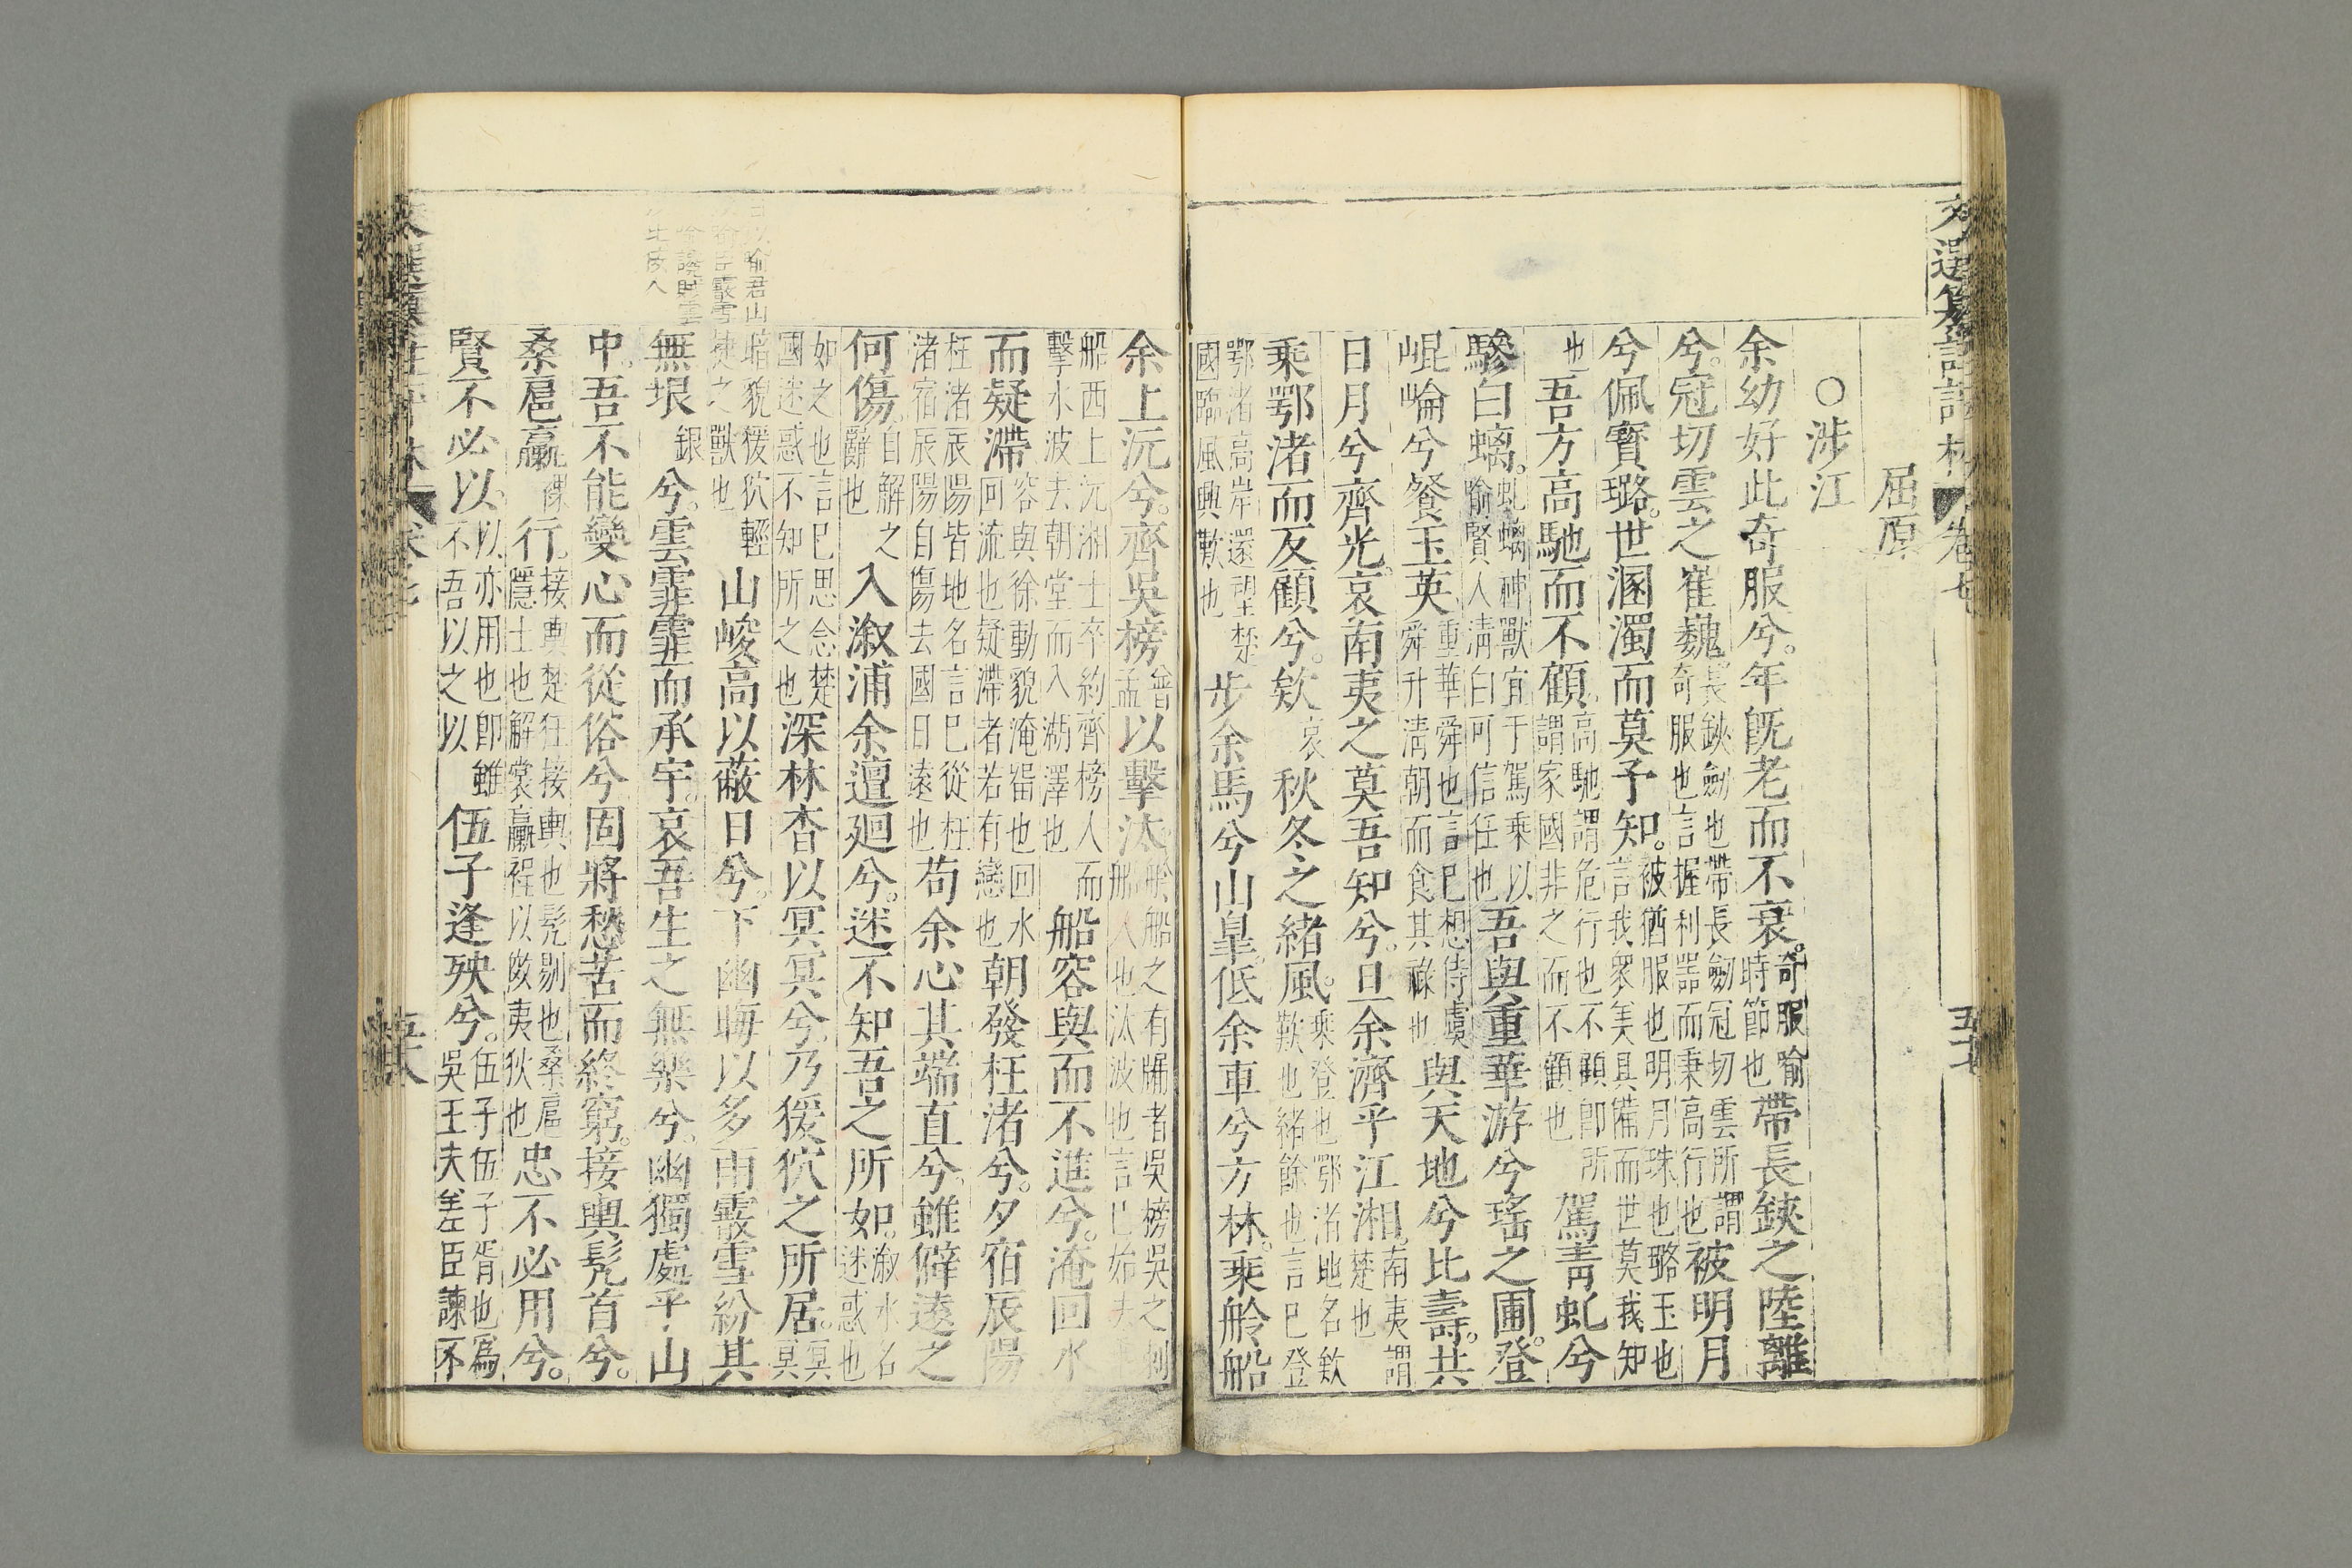 屈原
○涉江
余幼好此奇服兮。年旣老而不衰。奇服喻時節也帶長鋏之陸離
兮。冠切雲之崔巍長鋏劔也帶長劔冠切雲所謂奇服也言握利噐而秉高行也被明月
兮佩寳璐。世溷濁而莫予知。被猶服也明月珠也璐玉也言我衆美具備而世莫我知
也吾方高馳而不顧高馳謂危行也不顧卽所謂家國非之而不顧也駕靑虬兮
驂白螭。虬螭神獸宜于駕乘以喻賢人淸白可信任也吾與重華游兮瑤之圃。登
崐崘兮餐玉英重華舜也言巳想侍虞舜升淸朝而食其祿也與天地兮比壽。共
日月兮齊光。哀南夷之莫吾知兮。旦余濟乎江湘。南夷謂楚也
乘鄂渚而反顧兮。欸哀秋冬之緒風。乘登也鄂渚地名欸歎也緒餘也言巳登
鄂渚高岸還望楚國臨風興歎也步余馬兮山臯。低余車兮方林。乘舲船
余上沅兮。齊吳榜以擊汰舲船之有牕者吳榜吳之船人也汰波也言巳始去
船西上沅湘士卒約齊榜人而擊水波去朝堂而入湖澤也船容與而不進兮。淹回水
而疑滯容與徐動貌淹畱也回水回流也疑滯者若有戀也朝發枉渚兮。夕宿辰陽
枉渚辰陽皆地名言巳從枉渚宿辰陽自傷去國日遠也苟余心其端直兮。雖僻遠之
何傷自解之辭也入溆浦余邅廻兮。迷不知吾之所如。溆水名迷惑也
如之也言巳思念楚國迷惑不知所之也深林杳以冥冥兮。乃猨狖之所居。冥冥
暗貌猨狖輕捷之獸也山峻高以蔽日兮。下幽晦以多雨霰雪紛其
無垠銀兮。雲霏霏而承宇。哀吾生之無樂兮。幽獨處乎山
中。吾不能變心而從俗兮。固將愁苦而終窮。接輿髡首兮。
桑扈臝行。接輿楚狂接輿也髡剔也桑扈隱士也解裳臝裎以傚夷狄也忠不必用兮。
賢不必以。以亦用也卽雖不吾以之以伍子逢殃兮。伍子伍子胥也爲吳王夫差臣諫不